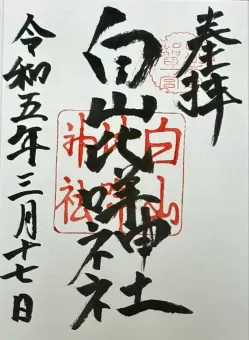 奉拝
白山比咩神社
白山比咩神社
令和五年三月十七日